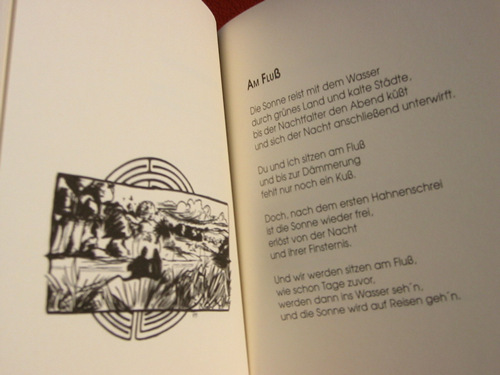 AM FLUß
Die Sonne reist mit dem Wasser
durch grünes Land und kalte Städte,
bis der Nachtfalter den Abend küßt
und sich der Nacht anschließend unterwirft.
Du und ich sitzen am Fluß
und bis zur Dämmerung
fehlt nur noch ein Kuß.
Doch, nach dem ersten Hahnenschrei
ist die Sonne wieder frei,
erlöst von der Nacht
und ihrer Finsternis.
Und wir werden sitzen am Fluß,
wie schon Tage zuvor,
werden dann ins Wasser seh'n,
und die Sonne wird auf Reisen geh'n.